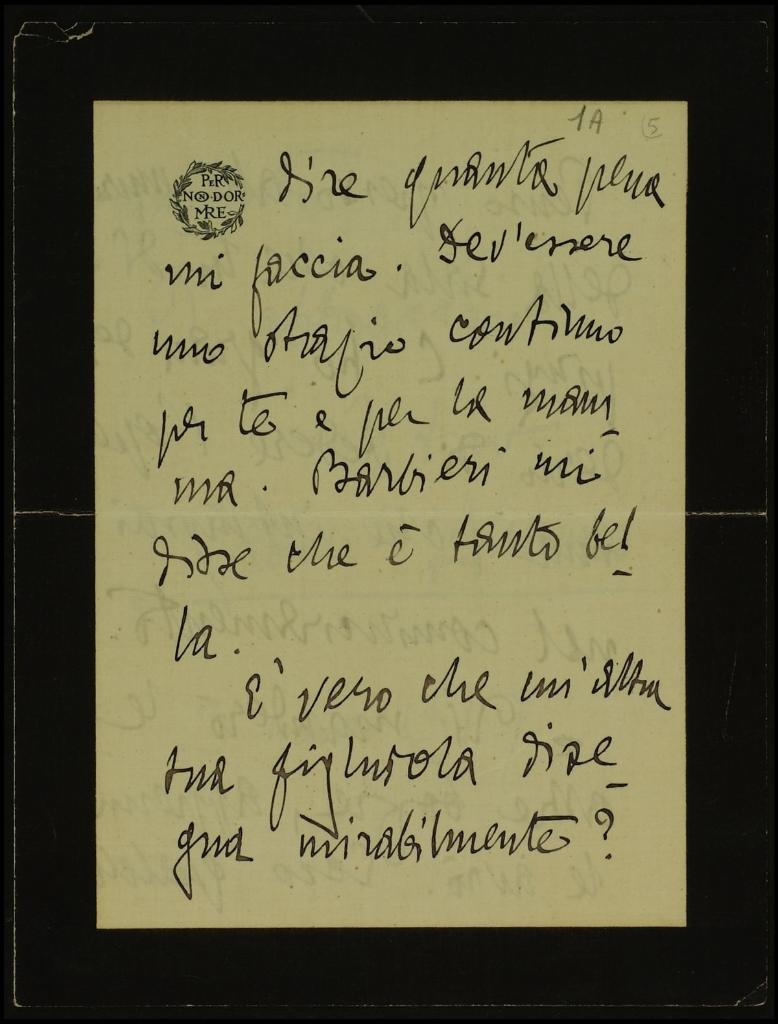 1A 5
PER
NON DOR
MIRE
dire quanta pena
mi faccia. Dev'essere
uno strazio continuo
per te e per la mam-
ma. Barbieri mi
disse che è tanto bel-
la.
È vero che un'altra
tua figliuola dise-
gna mirabilmente?